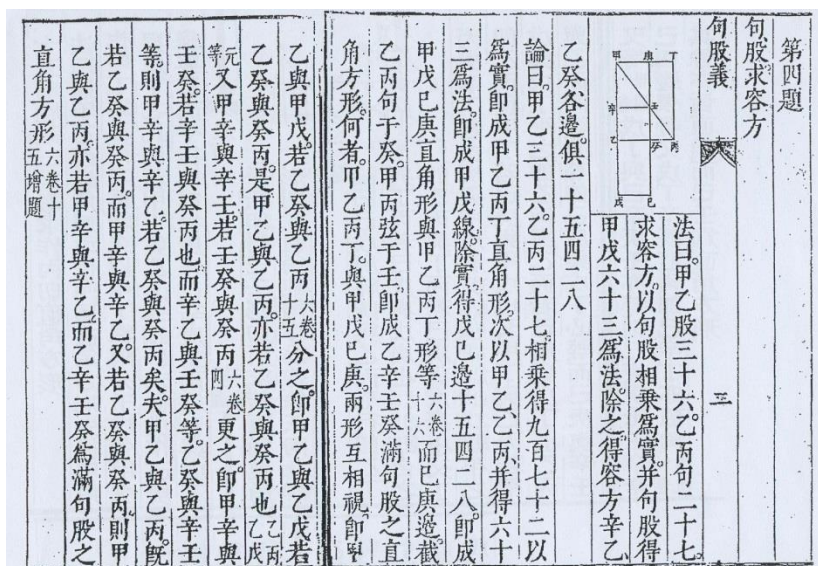 第四題
句股求容方
句股義
三
丁
庚
甲
辛
壬
乙
癸
丙
戊
己
法曰。甲乙股三十六。乙丙句二十七。
求容方。以句股相乘爲實。并句股得
甲戊六十三。爲法。除之。得容方辛乙
乙癸各邊俱一十五四二八
論曰。甲乙三十六。乙丙二十七。相乘得九百七十二以
爲實。卽成甲乙丙丁直角形。次以甲乙、乙丙、并得六十
三爲法。卽成甲戊線。除實。得戊己邊十五四二八。卽成
甲戊己庚直角形。與甲乙丙丁形等六卷十六而己庚邊。截
乙丙句于癸。甲丙弦于壬。卽成乙辛壬癸滿句股之直
角方形。何者。甲乙丙丁。與甲戊己庚。兩形互相視。卽甲
乙與甲戊。若乙癸與乙丙六卷十五分之。卽甲乙與乙戊若
乙癸與癸丙。是甲乙與乙丙。亦若乙癸與癸丙也乙丙乙戊
元等又甲辛與辛壬。若壬癸與癸丙六卷四更之。卽甲辛與
壬癸。若辛壬與癸丙也。而辛乙與壬癸等。乙癸與辛壬
等。則甲辛與辛乙。若乙癸與癸丙矣。夫甲乙與乙丙。旣
若乙癸與癸丙。而甲辛與辛乙。又若乙癸與癸丙。則甲
乙與乙丙。亦若甲辛與辛乙。而乙辛壬癸爲滿句股之
直角方形六卷十五增題